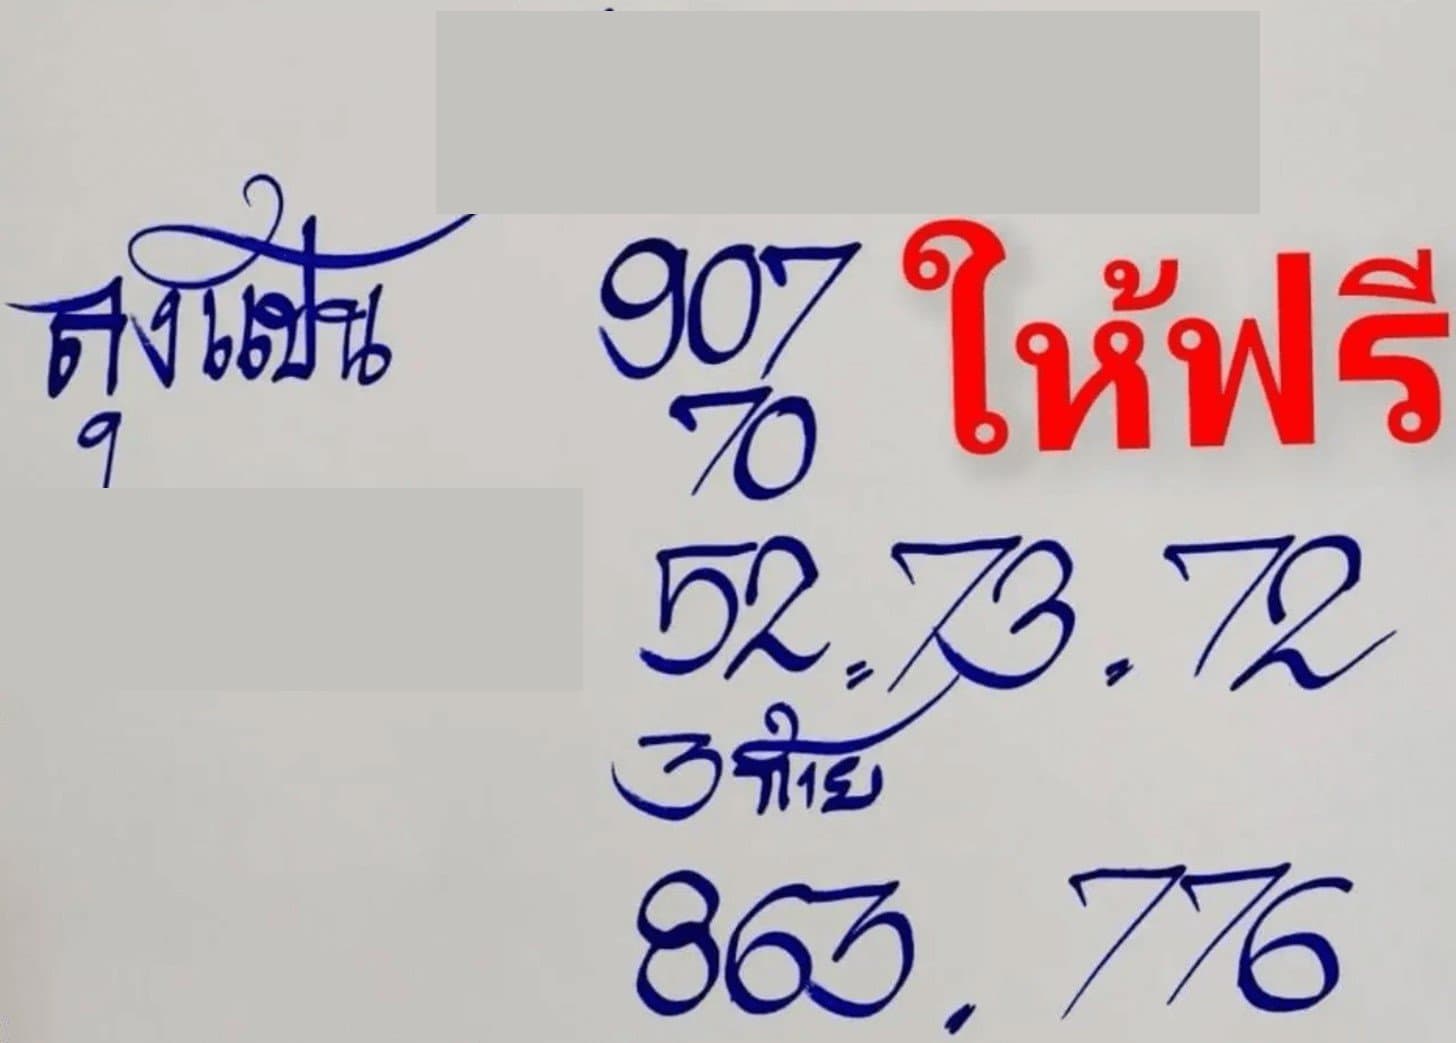 ลุงแป้น 907 ให้ฟรี
70
52.73.72
3ท้าย
863.776